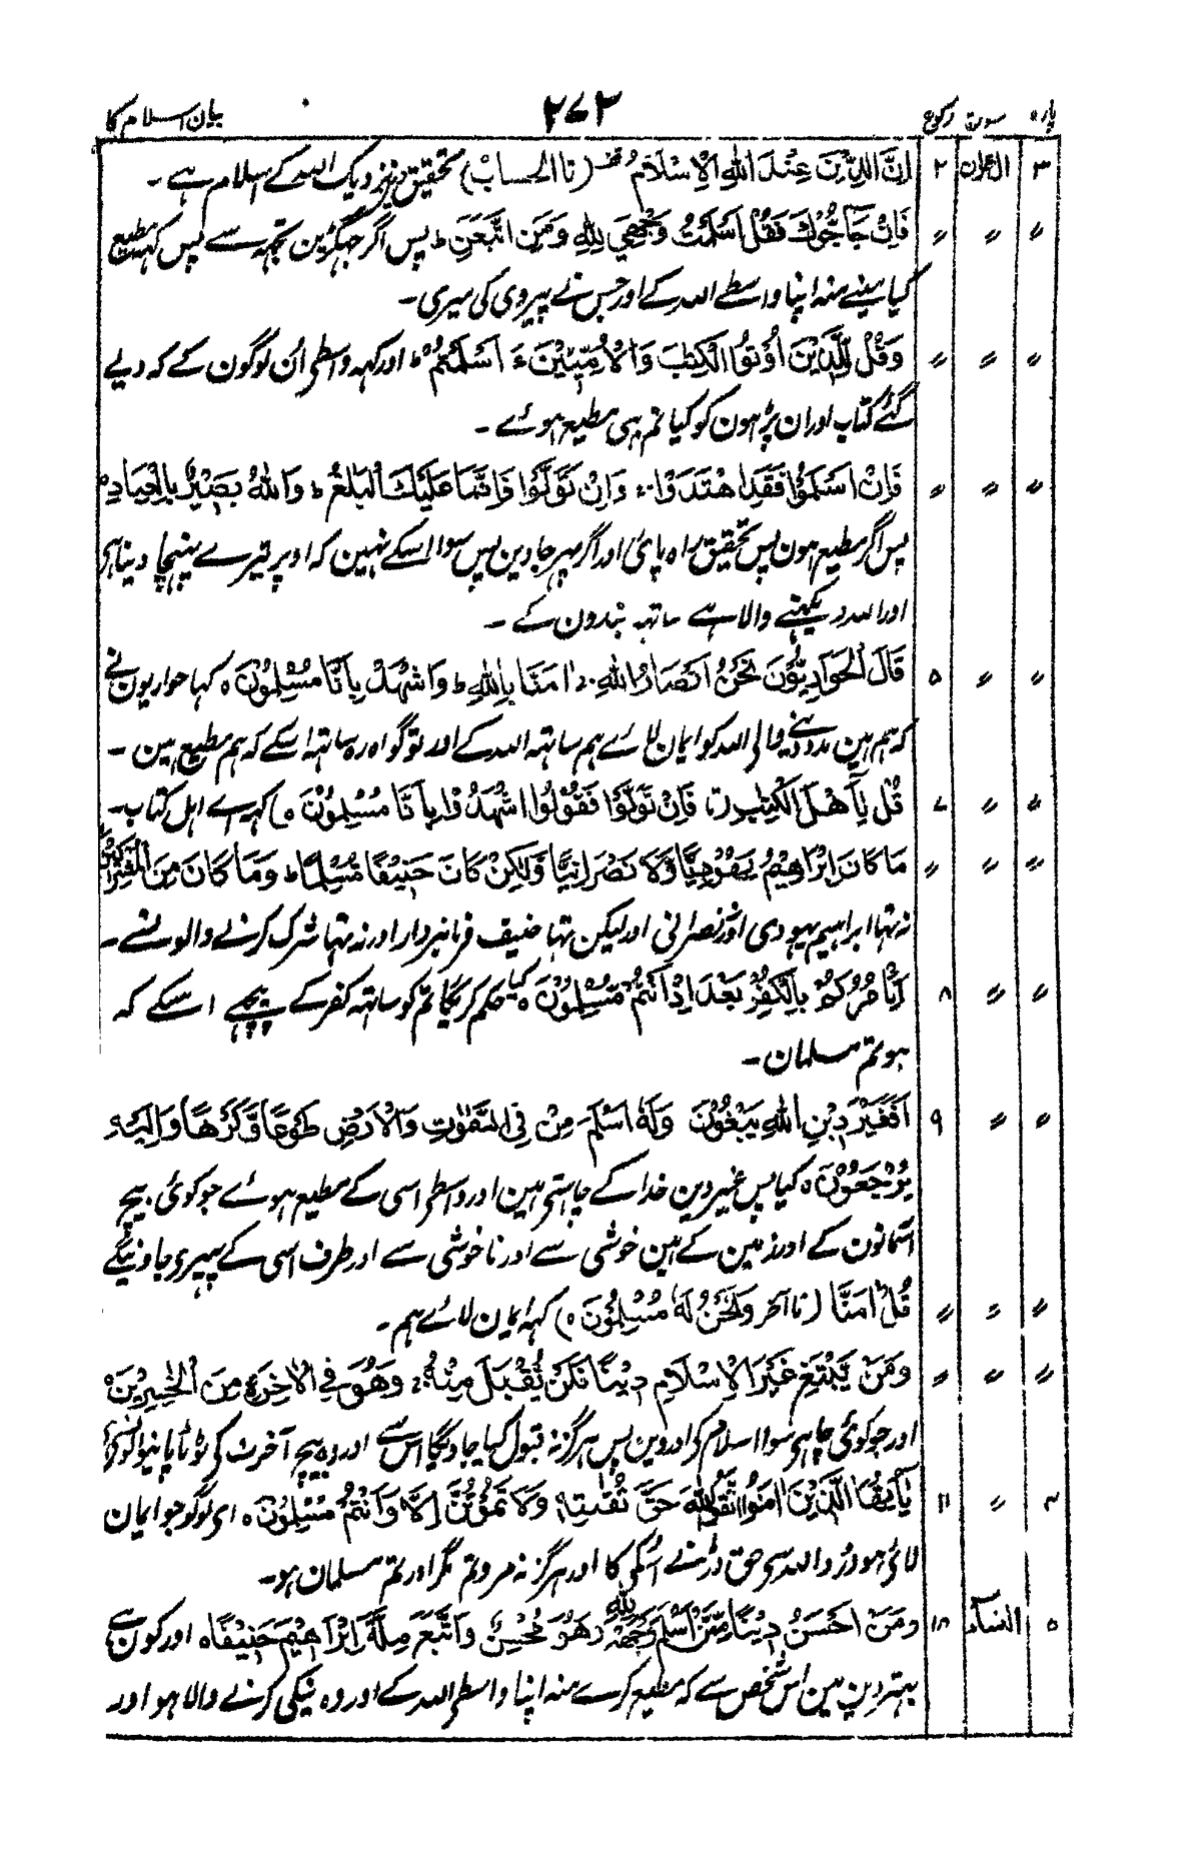 پارہ سورۃ رکوع ۲۷۲ بیان اسلام کا
۳ آل عمران ۲ اِنَّ الدِّیْنَ عِنْدَ اللّٰہِ الْاِسْلَامُ (تا الحساب) تحقیق دین نزدیک اللہ کے اسلام ہے ۔
〃 〃 〃 فَاِنْ حَآجُّوْكَ فَقُلْ اَسْلَمْتُ وَجْهِيَ لِلّٰہِ وَمَنِ اتَّبَعَنِ ؕ پس اگر جھگڑین تجہہ سے پس کہہ مطیع
کیا مینے منہ اپنا واسطے اللہ کے اور جس نے پیروی کی میری ۔
〃 〃 〃 وَقُلْ لِّلَّذِیْنَ اُوْتُوا الْکِتٰبَ وَالْاُمِّیّٖنَ ءَ اَسْلَمْتُمْ ؕ اور کہہ واسطے اُن لوگون کے کہ دیے
گئے کتاب اور ان پڑہون کو کیا تم بہی مطیع ہوئے ۔
〃 〃 〃 فَاِنْ اَسْلَمُوْا فَقَدِ اهْتَدَوْا ۚ وَاِنْ تَوَلَّوْا فَاِنَّمَا عَلَیْكَ الْبَلٰغُ ؕ وَاللّٰہُ بَصِیْرٌۢ بِالْعِبَادِ ہ
پس اگر مطیع ہون پس تحقیق راہ پائی اور اگر پہر جاوین پس سوا اسکے نہین کہ اوپر تیرے پہنچا دینا ہی
اور اللہ دیکہنے والا ہے ساتہہ بندون کے ۔
〃 〃 ۵ قَالَ الْحَوَارِیُّوْنَ نَحْنُ اَنْصَارُ اللّٰہِ ۚ اٰمَنَّا بِاللّٰہِ ؕ وَاشْهَدْ بِاَنَّا مُسْلِمُوْنَ ہ کہا حواریون نے
کہ ہم ہین مدد دینے والی اللہ کو ایمان لائے ہم ساتہہ اللہ کے اور تو گواہ رہ ساتہہ اسکے کہ ہم مطیع ہین ۔
〃 〃 ۷ قُلْ یٰٓاَهْلَ الْکِتٰبِ (تا) فَاِنْ تَوَلَّوْا فَقُوْلُوا اشْهَدُوْا بِاَنَّا مُسْلِمُوْنَ ہ) کہہ اے اہل کتاب ۔
〃 〃 〃 مَا کَانَ اِبْرٰهِیْمُ یَهُوْدِیًّا وَّلَا نَصْرَانِیًّا وَّلٰکِنْ کَانَ حَنِیْفًا مُّسْلِمًا ؕ وَمَا کَانَ مِنَ الْمُشْرِکِیْنَ
نہ تہا ابراہیم یہودی اور نصرانی اور لیکن تہا حنیف فرمانبردار اور نہ تہا شرک کرنے والونسے ۔
〃 〃 ۸ اَیَاْمُرُکُمْ بِالْکُفْرِ بَعْدَ اِذْ اَنْتُمْ مُّسْلِمُوْنَ ہ کیا حکم کریگا تم کو ساتہہ کفر کے پیچہے اسکے کہ
ہو تم مسلمان ۔
〃 〃 ۹ اَفَغَیْرَ دِیْنِ اللّٰہِ یَبْغُوْنَ وَلَہٗٓ اَسْلَمَ مَنْ فِی السَّمٰوٰتِ وَالْاَرْضِ طَوْعًا وَّکَرْهًا وَّاِلَیْہِ
یُرْجَعُوْنَ ہ کیا پس غیر دین خدا کے چاہتے ہین اور واسطے اسی کے مطیع ہوئے جو کوئی بیچ
آسمانون کے اور زمین کے ہین خوشی سے اور ناخوشی سے اور طرف اسی کے پہیرے جاوینگے
〃 〃 〃 قُلْ اٰمَنَّا (تا آخر وَنَحْنُ لَہٗ مُسْلِمُوْنَ ہ) کہہ ایمان لائے ہم ۔
〃 〃 〃 وَمَنْ یَّبْتَغِ غَیْرَ الْاِسْلَامِ دِیْنًا فَلَنْ یُّقْبَلَ مِنْہُ ۚ وَهُوَ فِی الْاٰخِرَةِ مِنَ الْخٰسِرِیْنَ
اور جو کوئی چاہے سوا اسلام کی اور دین پس ہرگز نہ قبول کیا جاویگا اس سے اور وہ بیچ آخرت کی ٹوٹا پانیوالونسے
۴ 〃 ۱۱ یٰٓاَیُّهَا الَّذِیْنَ اٰمَنُوا اتَّقُوا اللّٰہَ حَقَّ تُقٰتِہٖ وَلَا تَمُوْتُنَّ اِلَّا وَاَنْتُمْ مُّسْلِمُوْنَ ہ ای لوگو جو ایمان
لائے ہو ڈرو اللہ سے حق ڈرنے اسکی کا اور ہرگز نہ مرو تم مگر اور تم مسلمان ہو ۔
۵ النسآء ۱۸ وَمَنْ اَحْسَنُ دِیْنًا مِّمَّنْ اَسْلَمَ وَجْهَہٗ لِلّٰہِ وَهُوَ مُحْسِنٌ وَّاتَّبَعَ مِلَّةَ اِبْرٰهِیْمَ حَنِیْفًا ہ اور کون ہے
بہتر دین مین اس شخص سے کہ مطیع کرے منہ اپنا واسطے اللہ کے اور وہ نیکی کرنے والا ہو اور